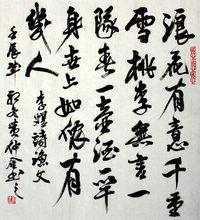 浪花有意千重
雪桃李無言一
隊春一壺酒一竿
身世上如儂有
幾人
李煜詩漁父
壬辰
黄仲金書